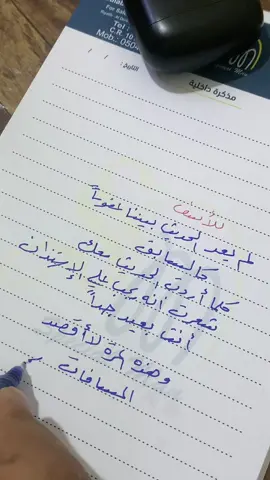 For Sal
Tel :
C.R. 10
Mob.: 050
مذكرة داخلية
التاريخ : / /
للأسف
لم يعد الحديث بيننا عفوياً
كالسابق
كلما أردت الحديث معك
شعرت أنه يجب علي الإستئذان
أنت بعيد جداً
وهذه المرة لا أقصد
المسافات